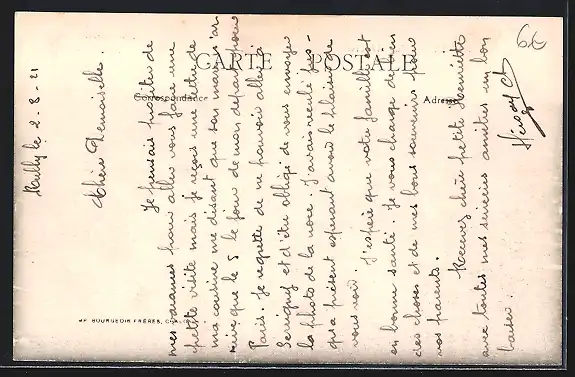 Neuilly le 2-8-21
Chère Demoiselle.
Je pensais profiter de
mes vacances pour aller vous faire une
petite visite mais je reçois une lettre de
ma cousine me disant que son mari n'ar
rive que le 5 le jour de mon départ pour
Paris. Je regrette de ne pouvoir aller à
Sérigny et d'être obligé de vous envoyer
la photo de la noce. J'avais reculé jus-
qu'a présent esperant avoir le plaisir de
vous voir. J'espère que votre famille est
en bonne santé. Je vous charge de bien
des choses et de mes bons souvenirs pour
vos parents.
Recevez chère petite Henriette
avec toutes mes sincères amitiés un bon
baiser.
CARTE POSTALE
Correspondance
Adresse
BOURGEOIS FRÈRES,